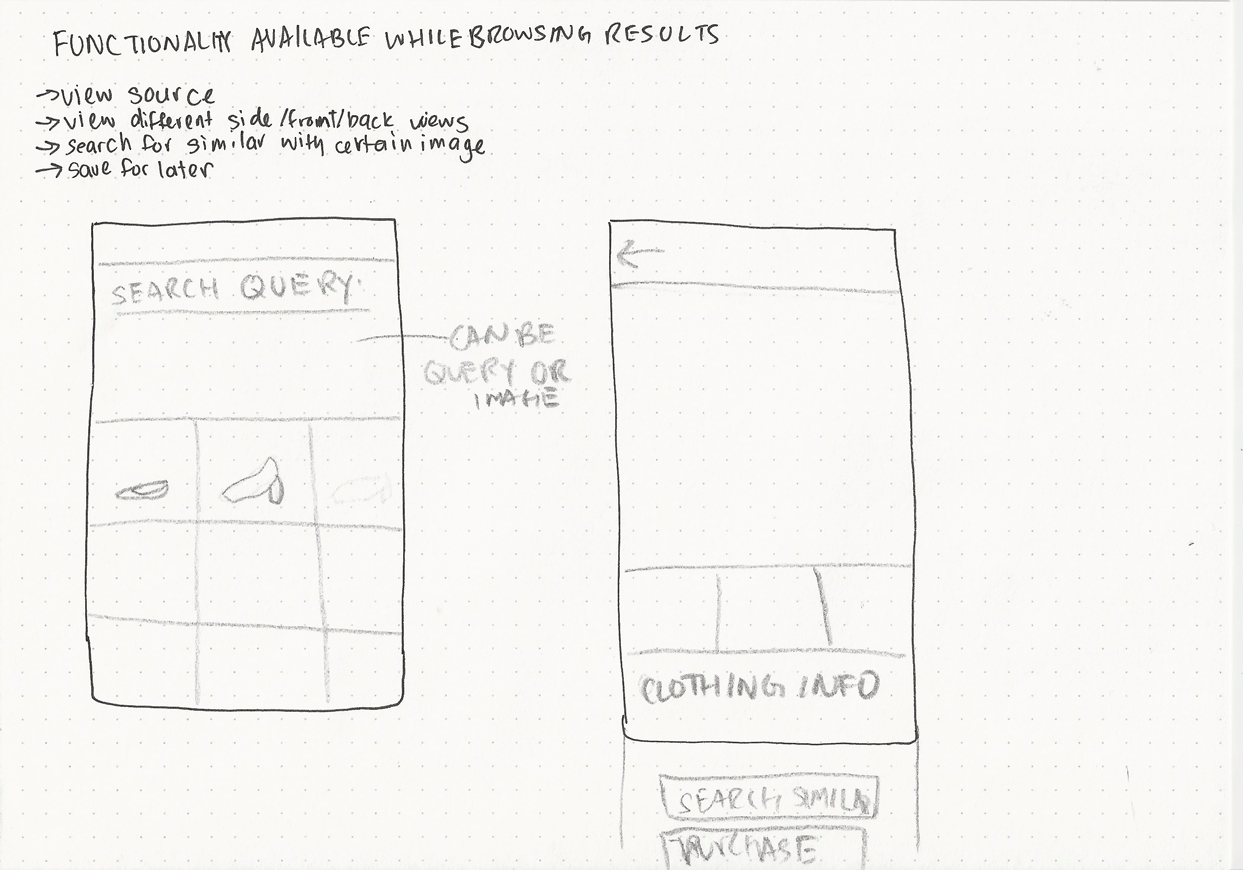 FUNCTIONALITY AVAILABLE WHILE BROWSING RESULTS
→ view source
→ view different side/front/back views
→ search for similar with certain image
→ save for later
SEARCH QUERY
CAN BE
QUERY OR
IMAGE
←
CLOTHING INFO
SEARCH SIMILAR
PURCHASE